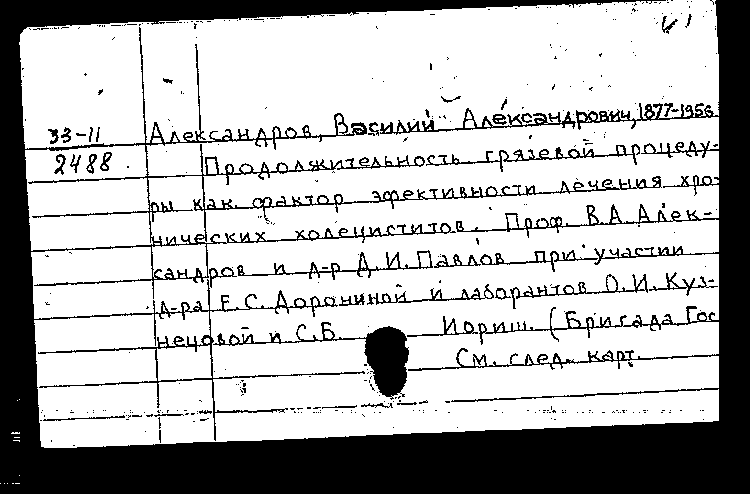 33-11 Александров, Василий Александрович, 1877-1956
2488. Продолжительность грязевой процеду-
ры как фактор эфективности лечения хро-
нических холециститов. Проф. В.А. Алек-
сандров и д-р Д.И. Павлов при участии
д-ра Е.С. Дорониной и лаборантов О.И. Куз-
нецовой и С.Б. Иориш. (Бригада Гос
См. след. карт.